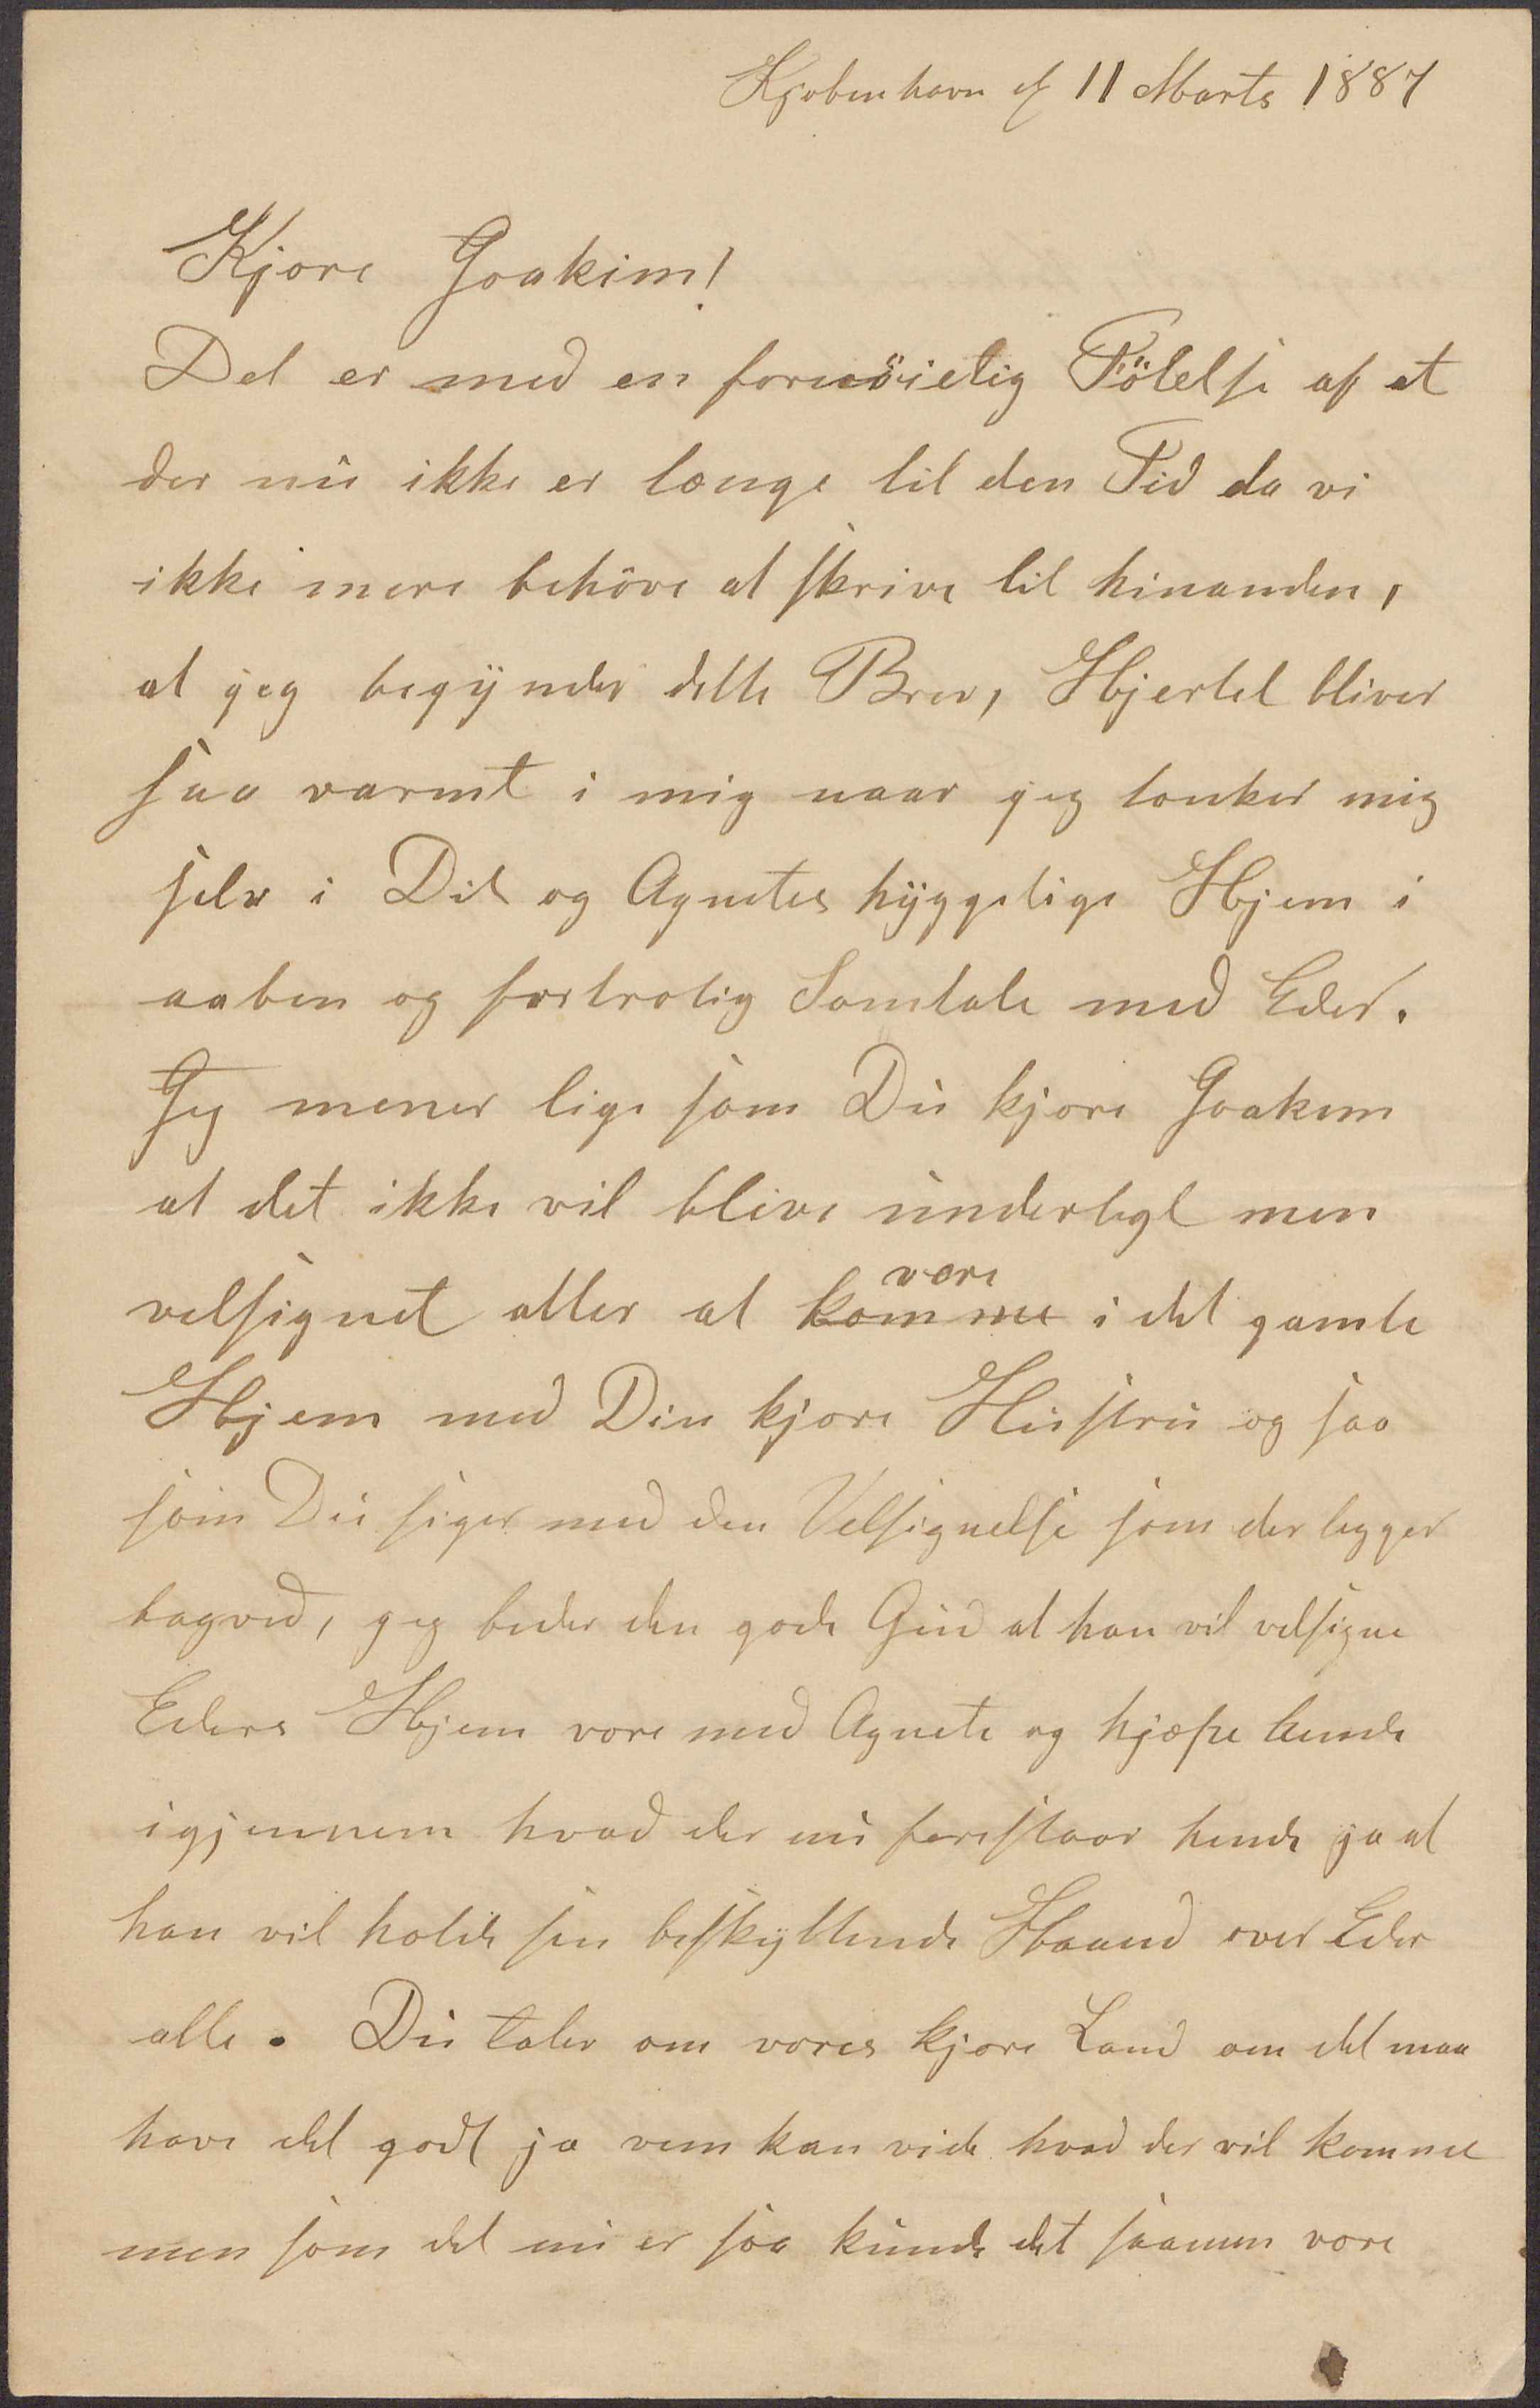 Kjøbenhavn d 11 Marts 1887
Kjære Joakim!
Det er med en fornöielig Fölelse af at
der nu ikke er længe til den Tid da vi
ikke mere behöve at skrive til hinanden,
at jeg begynder dette Brev, Hjertet bliver
saa varmt i mig naar jeg tænker mig
selv i Dit og Agnetes hyggelige Hjem i
aaben og fortrolig Samtale med Eder.
Jeg mener lige som Du kjære Joakim
at det ikke vil blive underligt men
velsignet atter at komme være i det gamle
Hjem med Din kjære Hustru og saa
som Du siger med den Velsignelse som der ligger
bagved, jeg beder den gode Gud at han vil velsigne
Eders Hjem være med Agnete og hjælpe hende
igjennem hvad der nu forestaar hende ja at
han vil holde sin beskyttende Haand over Eder
alle. Du taler om vores kjære Land om det maa
have det godt ja vem kan vide hvad der vil komme
men som det nu er saa kunde det saamen være